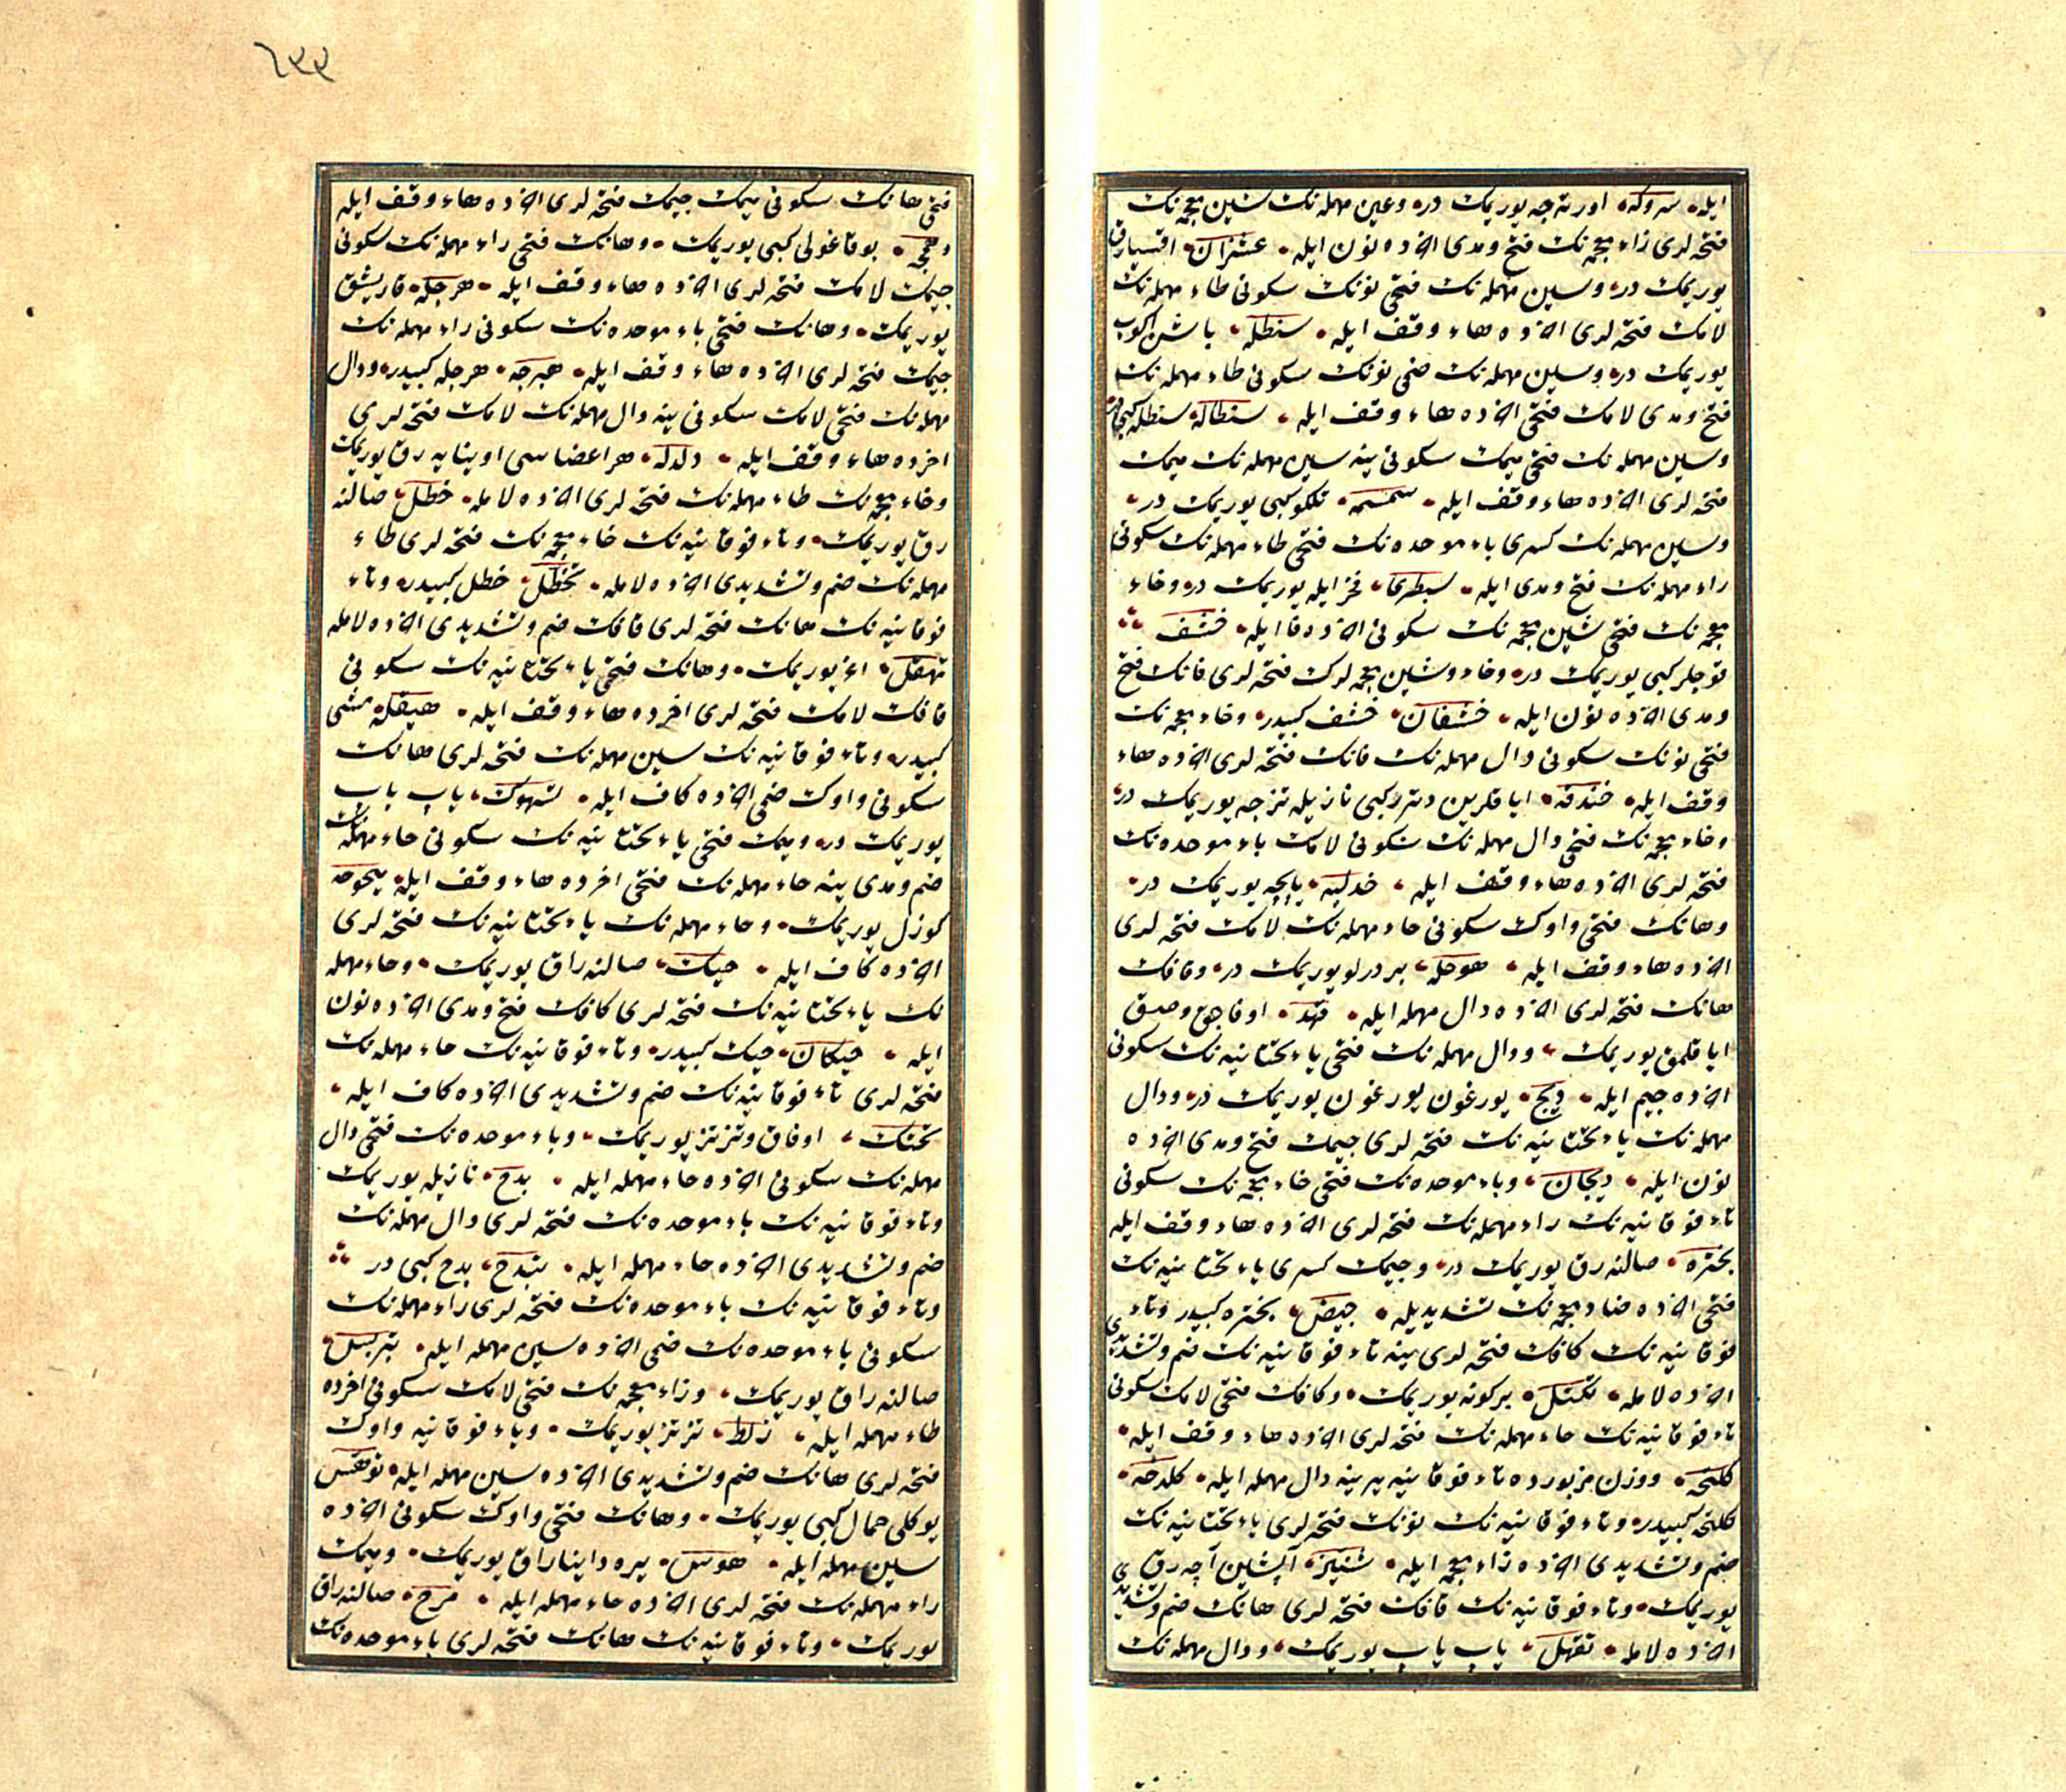 ایله سروکه اورته جه یوریمك در وعین مهمله نك شین معجمه نك
فتحه لری زاء معجمه نك فتح ومدی اخرده نون ایله عشزان اقسیارق
یوریمك در وسین مهمله نك فتحی نونك سکونی طاء مهمله نك
لامك فتحه لری اخرده هاء وقف ایله سنطله باشن اکوب
یوریمك در وسین مهمله نك ضمی نونك سکونی طاء مهمله نك
فتح ومدی لامك فتحی اخرده هاء وقف ایله سنطاله سنطله کبی
وسین مهمله نك فتحی میمك سکونی ینه سین مهمله نك میمك
فتحه لری اخرده هاء وقف ایله سمسمه تلکو کبی یوریمك در
وسین مهمله نك کسری باء موحده نك فتحی طاء مهمله نك سکونی
راء مهمله نك فتح ومدی ایله سبطری فخر ایله یوریمك در وخاء
معجمه نك فتحی شین معجمه نك سکونی اخرده فا ایله خشف
قوجلر کبی یوریمك در وخاء وشین معجمه لرك فتحه لری فانك فتح
ومدی اخرده نون ایله خشفان خشف کبیدر وخاء معجمه نك
فتحی نونك سکونی دال مهمله نك فانك فتحه لری اخرده هاء
وقف ایله خندفه ایاقلرین دتر کبی نازیله تزجه یوریمك در
وخاء معجمه نك فتحی دال مهمله نك سکونی لامك باء موحده نك
فتحه لری اخرده هاء وقف ایله خدلبه یابجه یوریمك در
وهانك فتحی واوك سکونی حاء مهمله نك لامك فتحه لری
اخرده هاء وقف ایله هوحله بر درلو یوریمك در وقافك
هانك فتحه لری اخرده دال مهمله ایله قهد اوفاجق وصق
ایاقلمق یوریمك ودال مهمله نك فتحی یاء تحتانیه نك سکونی
اخرده جیم ایله دیج یورغون یورغون یوریمك در ودال
مهمله نك یاء تحتانیه نك فتحه لری جیمك فتح ومدی اخرده
نون ایله دیجان وباء موحده نك فتحی خاء معجمه نك سکونی
تاء فوقانیه نك راء مهمله نك فتحه لری اخرده هاء وقف ایله
بختره صالنه رق یوریمك در وجیمك کسری یاء تحتانیه نك
فتحی اخرده ضاد معجمه نك تشدیدیله جیض بختره کبیدر وتاء
فوقانیه نك کافك فتحه لری ینه تاء فوقانیه نك ضم وتشدیدی
اخرده لامله تکتل برکونه یوریمك وکافك فتحی لامك سکونی
تاء فوقانیه نك حاء مهمله نك فتحه لری اخرده هاء وقف ایله
کلتحه ووزن مزبورده تاء فوقانیه یرینه دال مهمله ایله کلدحه
کلتحه کبیدر وتاء فوقانیه نك نونك فتحه لری یاء تحتانیه نك
ضم وتشدیدی اخرده زاء معجمه ایله آپشین آچه رق
یوریمك وتاء فوقانیه نك قافك فتحه لری هانك ضم وتشدیدی
اخرده لامله تقهل یاب یاب یوریمك ودال مهمله نك
٦٣٣
فتحی هانك سکونی میمك جیمك فتحه لری اخرده هاء وقف ایله
دهمجه بوقاغولی کبی یوریمك وهانك فتحی راء مهمله نك سکونی
جیمك لامك فتحه لری اخرده هاء وقف ایله هرجله قاریشق
یوریمك وهانك فتحی باء موحده نك سکونی راء مهمله نك
جیمك فتحه لری اخرده هاء وقف ایله هبرجه هرجله کبیدر ودال
مهمله نك فتحی لامك سکونی ینه دال مهمله نك لامك فتحه لری
اخرده هاء وقف ایله دلدله هر اعضاسی اوینایه رق یوریمك
وخاء معجمه نك طاء مهمله نك فتحه لری اخرده لامله خطل صالنه
رق یوریمك وتاء فوقانیه نك خاء معجمه نك فتحه لری طاء
مهمله نك ضم وتشدیدی اخرده لامله تخطل خطل کبیدر وتاء
فوقانیه نك هانك فتحه لری قافك ضم وتشدیدی اخرده لامله
تهقل اغز یوریمك وهانك فتحی یاء تحتانیه نك سکونی
قافك لامك فتحه لری اخرده هاء وقف ایله هیقله مشی
کبیدر وتاء فوقانیه نك سین مهمله نك فتحه لری هانك
سکونی واوك ضمی اخرده کاف ایله تسهوك یاب یاب
یوریمك در ومیمك فتحی یاء تحتانیه نك سکونی حاء مهمله نك
ضم ومدی ینه حاء مهمله نك فتحی اخرده هاء وقف ایله میحوحه
کوزل یوریمك وحاء مهمله نك یاء تحتانیه نك فتحه لری
اخرده کاف ایله حیك صالنه راق یوریمك وحاء مهمله
نك یاء تحتانیه نك فتحه لری کافك فتح ومدی اخرده نون
ایله حیکان حیك کبیدر وتاء فوقانیه نك حاء مهمله نك
فتحه لری تاء فوقانیه نك ضم وتشدیدی اخرده کاف ایله
تحتك اوفاق وتزتز یوریمك وباء موحده نك فتحی دال
مهمله نك سکونی اخرده حاء مهمله ایله بدح نازیله یوریمك
وتاء فوقانیه نك باء موحده نك فتحه لری دال مهمله نك
ضم وتشدیدی اخرده حاء مهمله ایله تبدح بدح کبی در
وتاء فوقانیه نك باء موحده نك فتحه لری راء مهمله نك
سکونی باء موحده نك ضمی اخرده سین مهمله ایله تبربس
صالنه راق یوریمك وزاء معجمه نك فتحی لامك سکونی اخرده
طاء مهمله ایله زلط تزتز یوریمك وتاء فوقانیه واوك
فتحه لری هانك ضم وتشدیدی اخرده سین مهمله ایله توهس
یوکلی حمال کبی یوریمك وهانك فتحی واوك سکونی اخرده
سین مهمله ایله هوس یره داینا راق یوریمك ومیمك
راء مهمله نك فتحه لری اخرده حاء مهمله ایله مرح صالنه راق
یوریمك وتاء فوقانیه نك هانك فتحه لری باء موحده نك